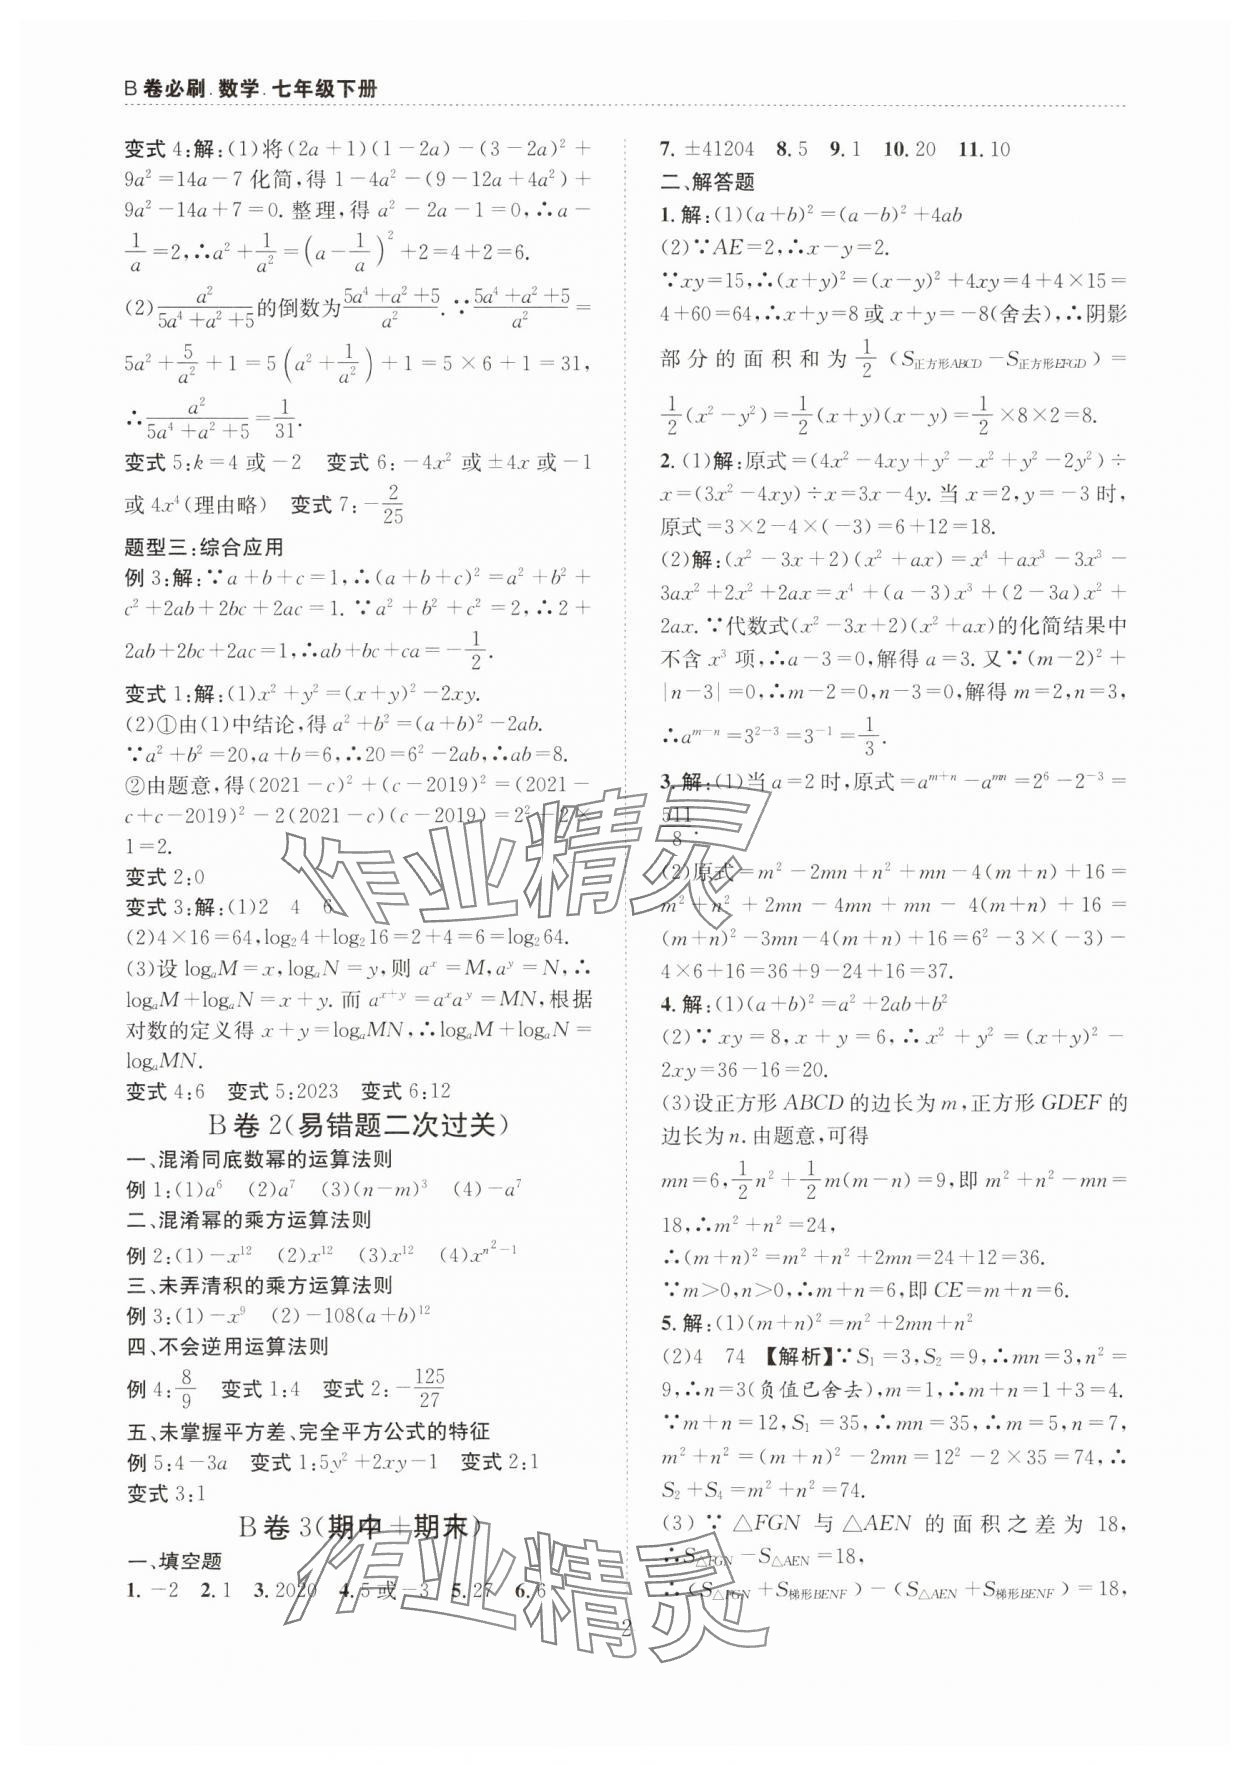 B 卷必刷.数学.七年级下册
变式 4:解:(1)将(2a+1)(1-2a)-(3-2a)²+
9a²=14a-7 化简,得 1-4a²-(9-12a+4a²)+
9a²-14a+7=0. 整理,得 a²-2a-1=0,∴a-
1/a=2,∴a²+1/a²=(a-1/a)²+2=4+2=6.
(2)a²/(5a⁴+a²+5)的倒数为(5a⁴+a²+5)/a².∵(5a⁴+a²+5)/a²=
5a²+5/a²+1=5(a²+1/a²)+1=5×6+1=31,
∴a²/(5a⁴+a²+5)=1/31.
变式 5:k=4 或-2 变式 6:-4x² 或±4x 或-1
或 4x⁴(理由略) 变式 7:-2/25
题型三:综合应用
例 3:解:∵a+b+c=1,∴(a+b+c)²=a²+b²+
c²+2ab+2bc+2ac=1. ∵a²+b²+c²=2,∴2+
2ab+2bc+2ac=1,∴ab+bc+ca=-1/2.
变式 1:解:(1)x²+y²=(x+y)²-2xy.
(2)①由(1)中结论,得 a²+b²=(a+b)²-2ab.
∵a²+b²=20,a+b=6,∴20=6²-2ab,∴ab=8.
②由题意,得(2021-c)²+(c-2019)²=(2021-
c+c-2019)²-2(2021-c)(c-2019)=2²-2×
1=2.
变式 2:0
变式 3:解:(1)2 4 6
(2)4×16=64,log₂4+log₂16=2+4=6=log₂64.
(3)设 logₐM=x,logₐN=y,则 aˣ=M,aʸ=N,∴
logₐM+logₐN=x+y. 而 aˣ⁺ʸ=aˣaʸ=MN,根据
对数的定义得 x+y=logₐMN,∴logₐM+logₐN=
logₐMN.
变式 4:6 变式 5:2023 变式 6:12
B 卷 2(易错题二次过关)
一、混淆同底数幂的运算法则
例 1:(1)a⁶ (2)a⁷ (3)(n-m)³ (4)-a⁷
二、混淆幂的乘方运算法则
例 2:(1)-x¹² (2)x¹² (3)x¹² (4)x^(n²-1)
三、未弄清积的乘方运算法则
例 3:(1)-x⁹ (2)-108(a+b)¹²
四、不会逆用运算法则
例 4:8/9 变式 1:4 变式 2:-125/27
五、未掌握平方差、完全平方公式的特征
例 5:4-3a 变式 1:5y²+2xy-1 变式 2:1
变式 3:1
B 卷 3(期中+期末)
一、填空题
1. -2 2. 1 3. 2020 4. 5 或-3 5. 27 6. 6
7. ±41204 8. 5 9. 1 10. 20 11. 10
二、解答题
1. 解:(1)(a+b)²=(a-b)²+4ab
(2)∵AE=2,∴x-y=2.
∵xy=15,∴(x+y)²=(x-y)²+4xy=4+4×15=
4+60=64,∴x+y=8 或 x+y=-8(舍去),∴阴影
部分的面积和为1/2(S正方形ABCD-S正方形EFGD)=
1/2(x²-y²)=1/2(x+y)(x-y)=1/2×8×2=8.
2. (1)解:原式=(4x²-4xy+y²-x²+y²-2y²)÷
x=(3x²-4xy)÷x=3x-4y. 当 x=2,y=-3 时,
原式=3×2-4×(-3)=6+12=18.
(2)解:(x²-3x+2)(x²+ax)=x⁴+ax³-3x³-
3ax²+2x²+2ax=x⁴+(a-3)x³+(2-3a)x²+
2ax. ∵代数式(x²-3x+2)(x²+ax)的化简结果中
不含 x³ 项,∴a-3=0,解得 a=3. 又∵(m-2)²+
|n-3|=0,∴m-2=0,n-3=0,解得 m=2,n=3,
∴aᵐ⁻ⁿ=3²⁻³=3⁻¹=1/3.
3. 解:(1)当 a=2 时,原式=aᵐ⁺ⁿ-aᵐⁿ=2⁶-2⁻³=
511/8.
(2)原式=m²-2mn+n²+mn-4(m+n)+16=
m²+n²+2mn-4mn+mn-4(m+n)+16=
(m+n)²-3mn-4(m+n)+16=6²-3×(-3)-
4×6+16=36+9-24+16=37.
4. 解:(1)(a+b)²=a²+2ab+b²
(2)∵xy=8,x+y=6,∴x²+y²=(x+y)²-
2xy=36-16=20.
(3)设正方形 ABCD 的边长为 m,正方形 GDEF 的
边长为 n. 由题意,可得
mn=6,1/2n²+1/2m(m-n)=9,即 m²+n²-mn=
18,∴m²+n²=24,
∴(m+n)²=m²+n²+2mn=24+12=36.
∵m>0,n>0,∴m+n=6,即 CE=m+n=6.
5. 解:(1)(m+n)²=m²+2mn+n²
(2)4 74 【解析】∵S₁=3,S₂=9,∴mn=3,n²=
9,∴n=3(负值已舍去),m=1,∴m+n=1+3=4.
∵m+n=12,S₁=35,∴mn=35,∴m=5,n=7,
m²+n²=(m+n)²-2mn=12²-2×35=74,∴
S₂+S₄=m²+n²=74.
(3)∵△FGN 与△AEN 的面积之差为 18,
∴S△FGN-S△AEN=18,
∴(S△FGN+S梯形BENF)-(S△AEN+S梯形BENF)=18,
2
作业精灵
作业精灵